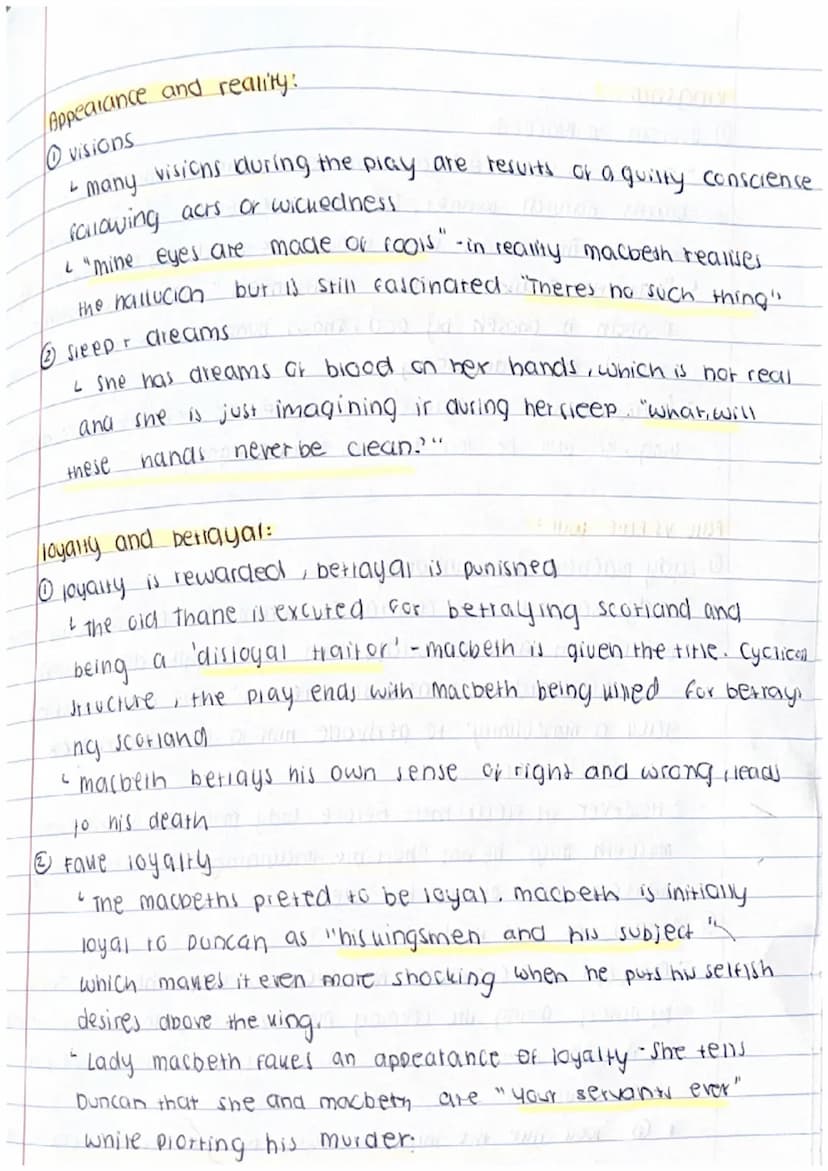 Appearance and reality:
① visions
↳ many visions during the play are results of a guilty conscience
following acts of wickedness
↳ "mine eyes are made of fools" - in reality macbeth realises
the hallucion but is still fascinated. "Theres no such thing"
② sleep + dreams
↳ she has dreams of blood on her hands, which is not real
and she is just imagining it during her sleep. "what, will
these hands never be clean?"
loyalty and betrayal:
① loyalty is rewarded, betrayal is punished
↳ the old thane is excuted for betraying scotland and
being a 'disloyal traitor' - macbeth is given the title. Cyclical
structure, the play ends with macbeth being killed for betrayi
ng scotland
↳ macbeth betrays his own sense of right and wrong, leads
to his death
② Fake loyalty
↳ The macbeths preted to be loyal. macbeth is initially
loyal to Duncan as "his kingsmen and his subject"
which makes it even more shocking when he puts his selfish
desires above the king.
↳ Lady macbeth fakes an appearance of loyalty - she tells
Duncan that she and macbeth are "your servants ever"
while plotting his murder.